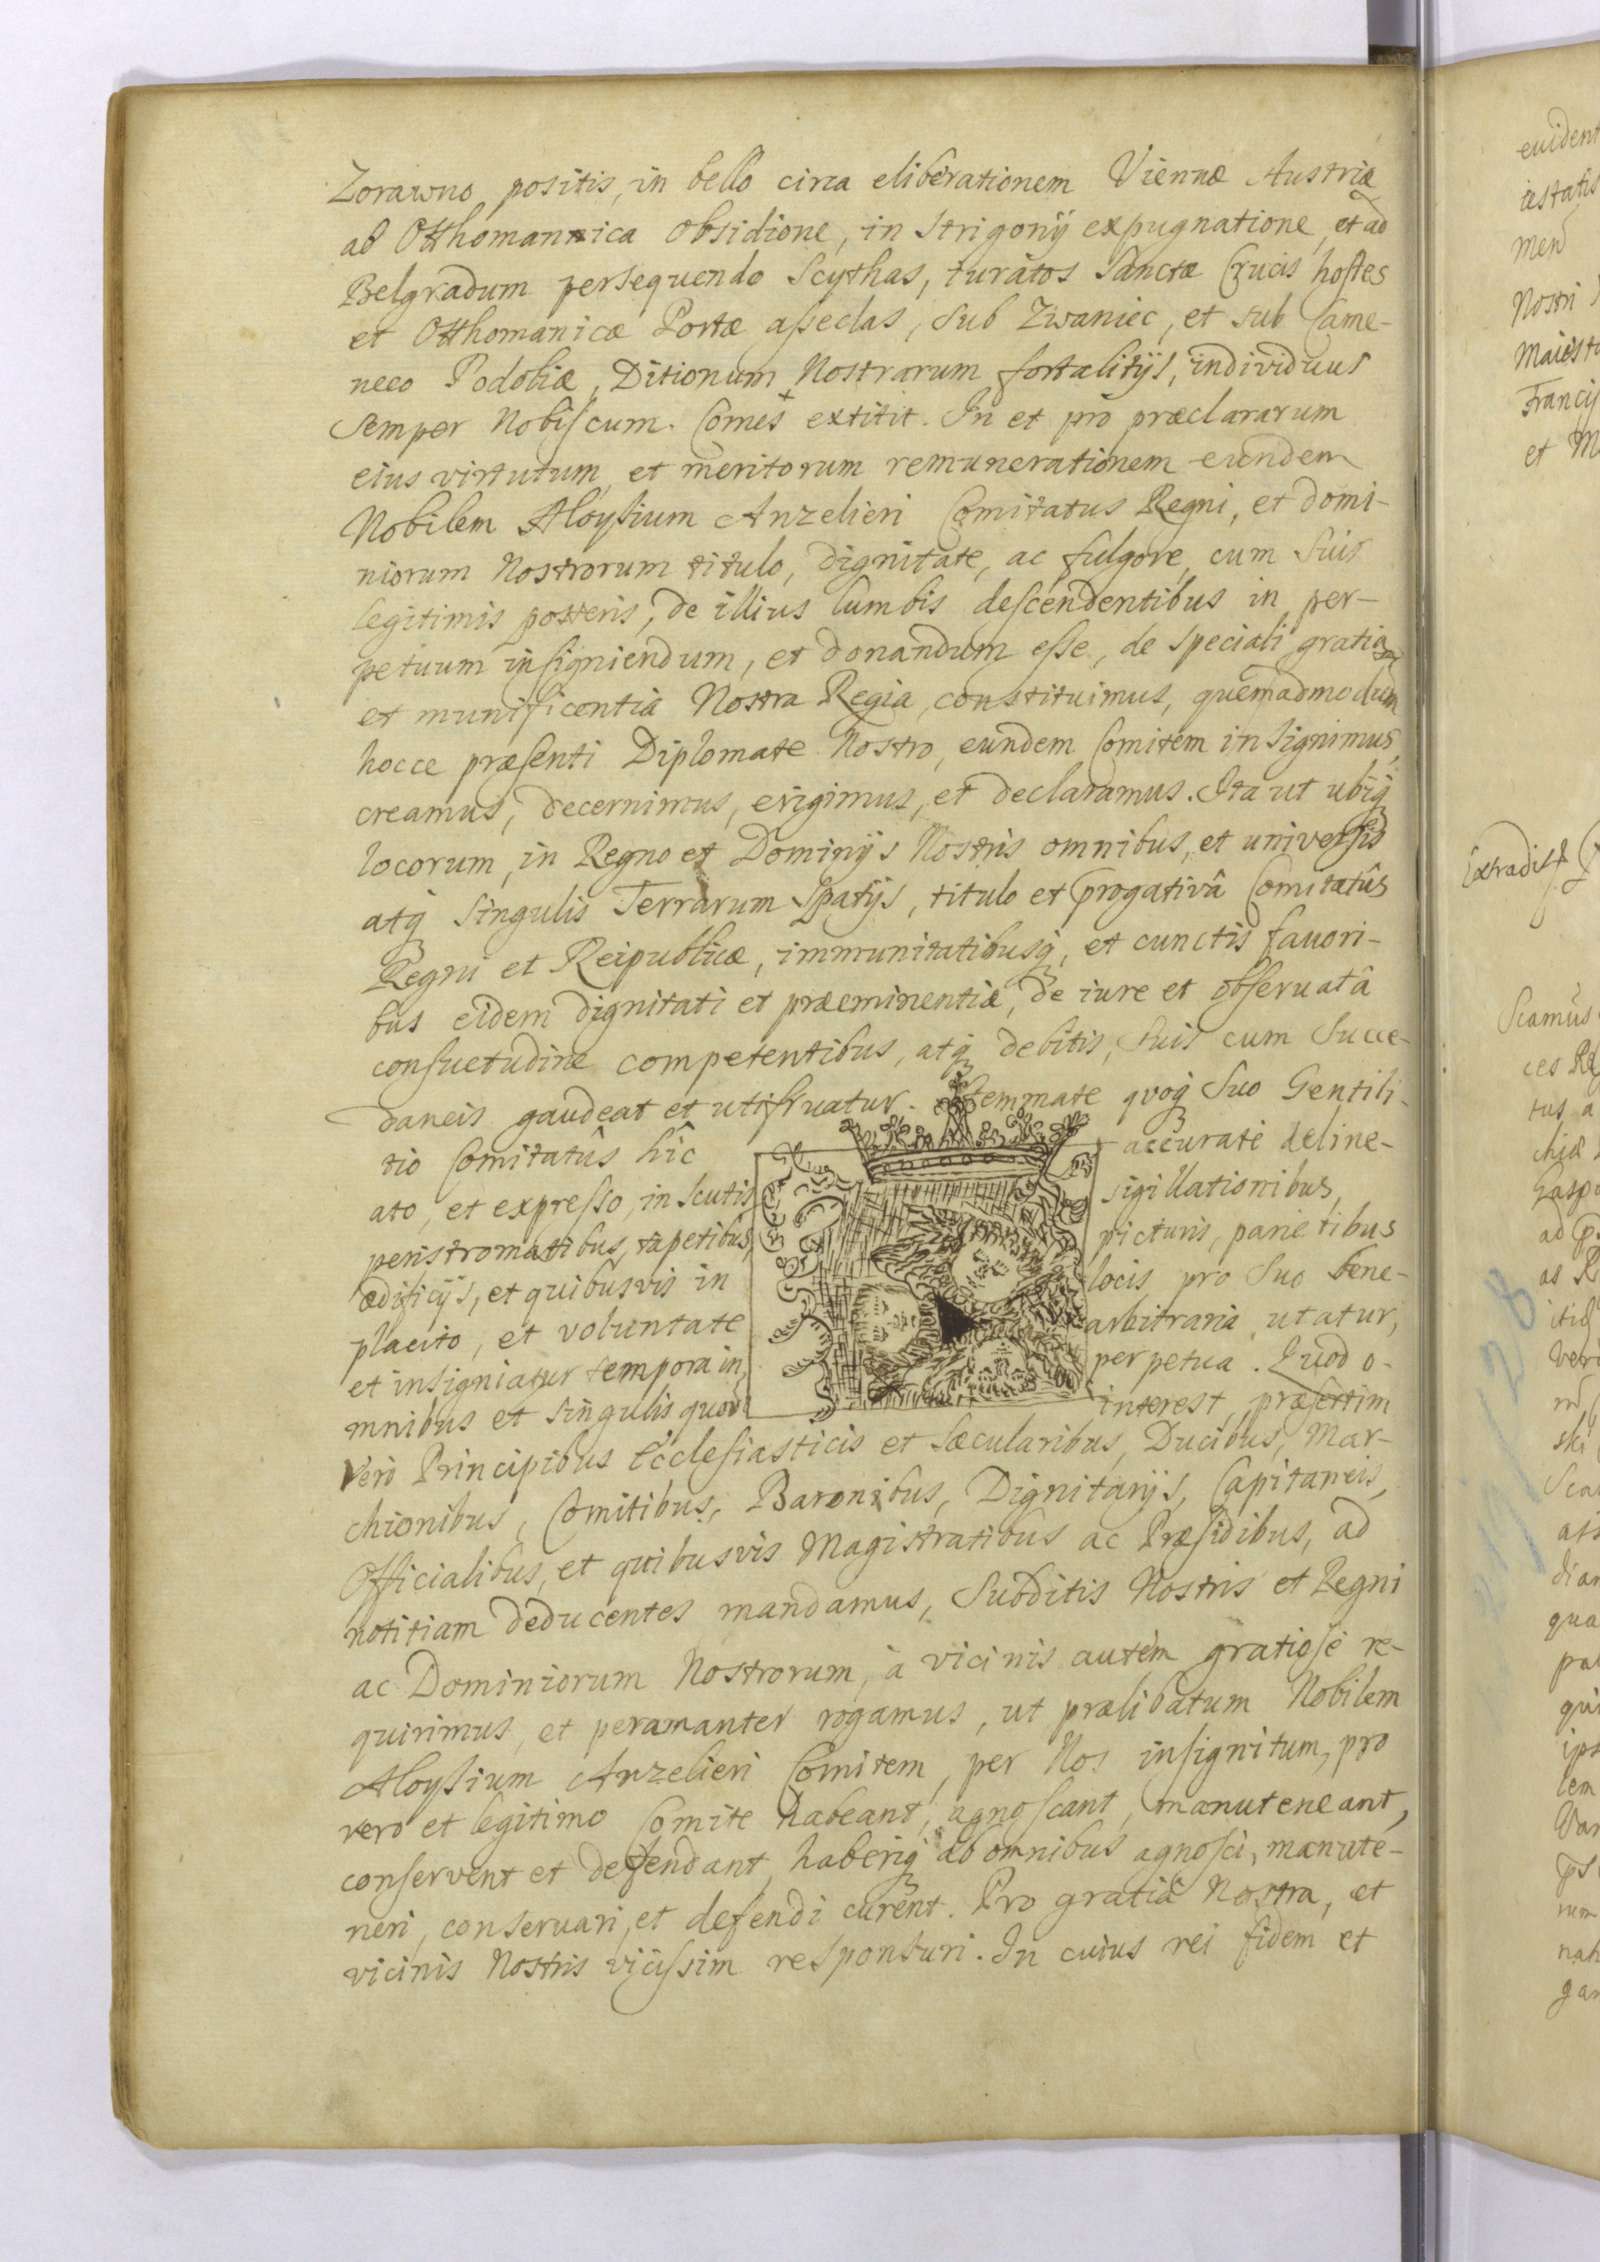 Zorawno positis, in bello circa eliberationem Viennæ Austriæ
ab Otthomannica obsidione, in Strigonÿ expugnatione, et ad
Belgradum persequendo Scythas, iuratos Sanctæ Crucis hostes
et Otthomanicæ Portæ asseclas, sub Zwaniec, et sub Came-
neco Podoliæ, Ditionum Nostrarum fortalitÿs, individuus
semper Nobiscum Comes extitit. In et pro præclararum
eius virtutum, et meritorum remunerationem eundem
Nobilem Aloysium Anzelieri Comitatus Regni, et domi-
niorum Nostrorum titulo, dignitate, ac fulgore, cum suis
legitimis posteris, de illius lumbis descendentibus in per-
petuum insigniendum, et donandum esse, de speciali gratia
et munificentia Nostra Regia, constituimus, quemadmodum
hocce præsenti Diplomate Nostro, eundem Comitem insignimus,
creamus, decernimus, erigimus, et declaramus. Ita ut ubiq
locorum, in Regno et Dominÿs Nostris omnibus, et universis
atq singulis Terrarum Spatÿs, titulo et progativâ Comitatûs
Regni et Reipublicæ, immunitatibusq, et cunctis favori-
bus eidem dignitati et præeminentiæ, de iure et observatâ
consuetudine competentibus, atq debitis, suis cum succe-
daneis gaudeat et utifruatur. Stemmate quoq suo Gentili-
tio Comitatûs hîc accuratè deline-
ato, et expresso, in scutis sigillationibus,
peristromatibus, tapetibus picturis, parietibus
ædificÿs, et quibusvis in locis pro suo bene-
placito, et voluntate arbitraria utatur,
et insigniatur tempora in perpetua. Quod o-
mnibus et singulis quorũ interest, præsertim
verò Principibus Ecclesiasticis et Sæcularibus, Ducibus, Mar-
chionibus, Comitibus, Baronibus, Dignitarÿs, Capitaneis,
Officialibus, et quibusvis Magistratibus ac Præsidibus, ad
notitiam deducentes mandamus, Subditis Nostris et Regni
ac Dominiorum Nostrorum, à vicinis autèm gratiosè re-
quirimus, et peramanter rogamus, ut prælibatum Nobilem
Aloysium Anzelieri Comitem, per Nos insignitum, pro
vero et legitimo Comite habeant, agnoscant, manuteneant,
conservent et defendant, haberiq ab omnibus agnosci, manute-
neri, conservari, et defendi curent. Pro gratiâ Nostra, et
vicinis Nostris vicissim responsuri. In cuius rei fidem et
evident
iestatis
men
Nostri
Maiest
Francis
et M
Extradit
Scamus
ces Re
tus a
chiæ
Gasp
ski
quæ
28